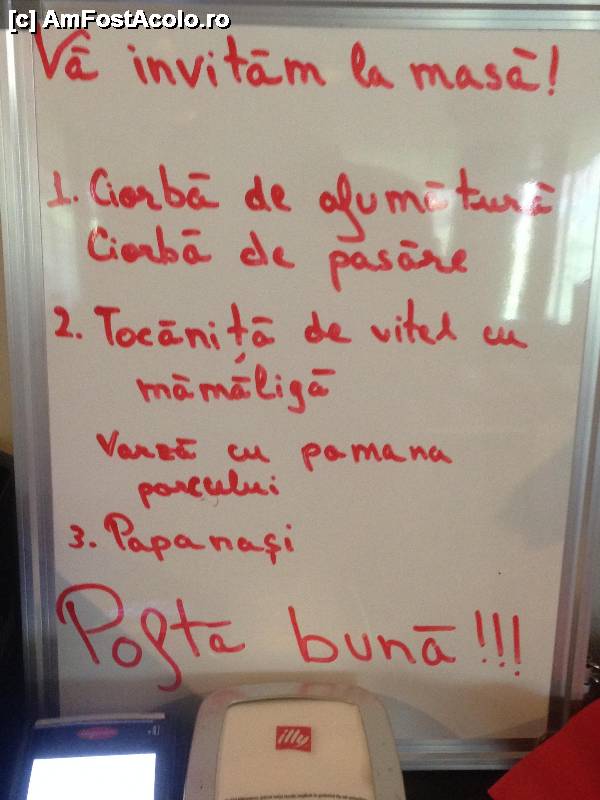 [c] AmFostAcolo.ro
Vă invităm la masă!
1. Ciorbă de afumătură
Ciorbă de pasăre
2. Tocăniță de vitel cu
mămăligă
Varză cu pamana
porcului
3. Papanași
Poftă bună!!!
illy